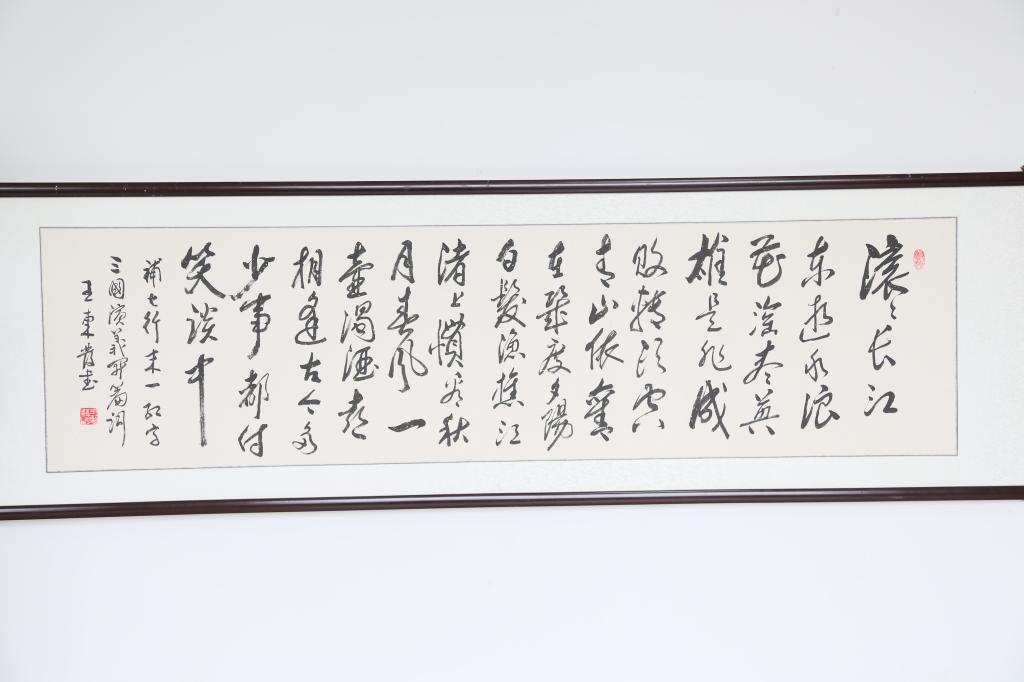 滚々长江
东逝水浪
花淘尽英
雄是非成
败转头空
青山依舊
在几度夕陽
白髮渔樵江
渚上惯看秋
月春风一
壶濁酒喜
相逢古今多
少事都付
笑谈中
補七行末一红字
三國演義开篇词
王東